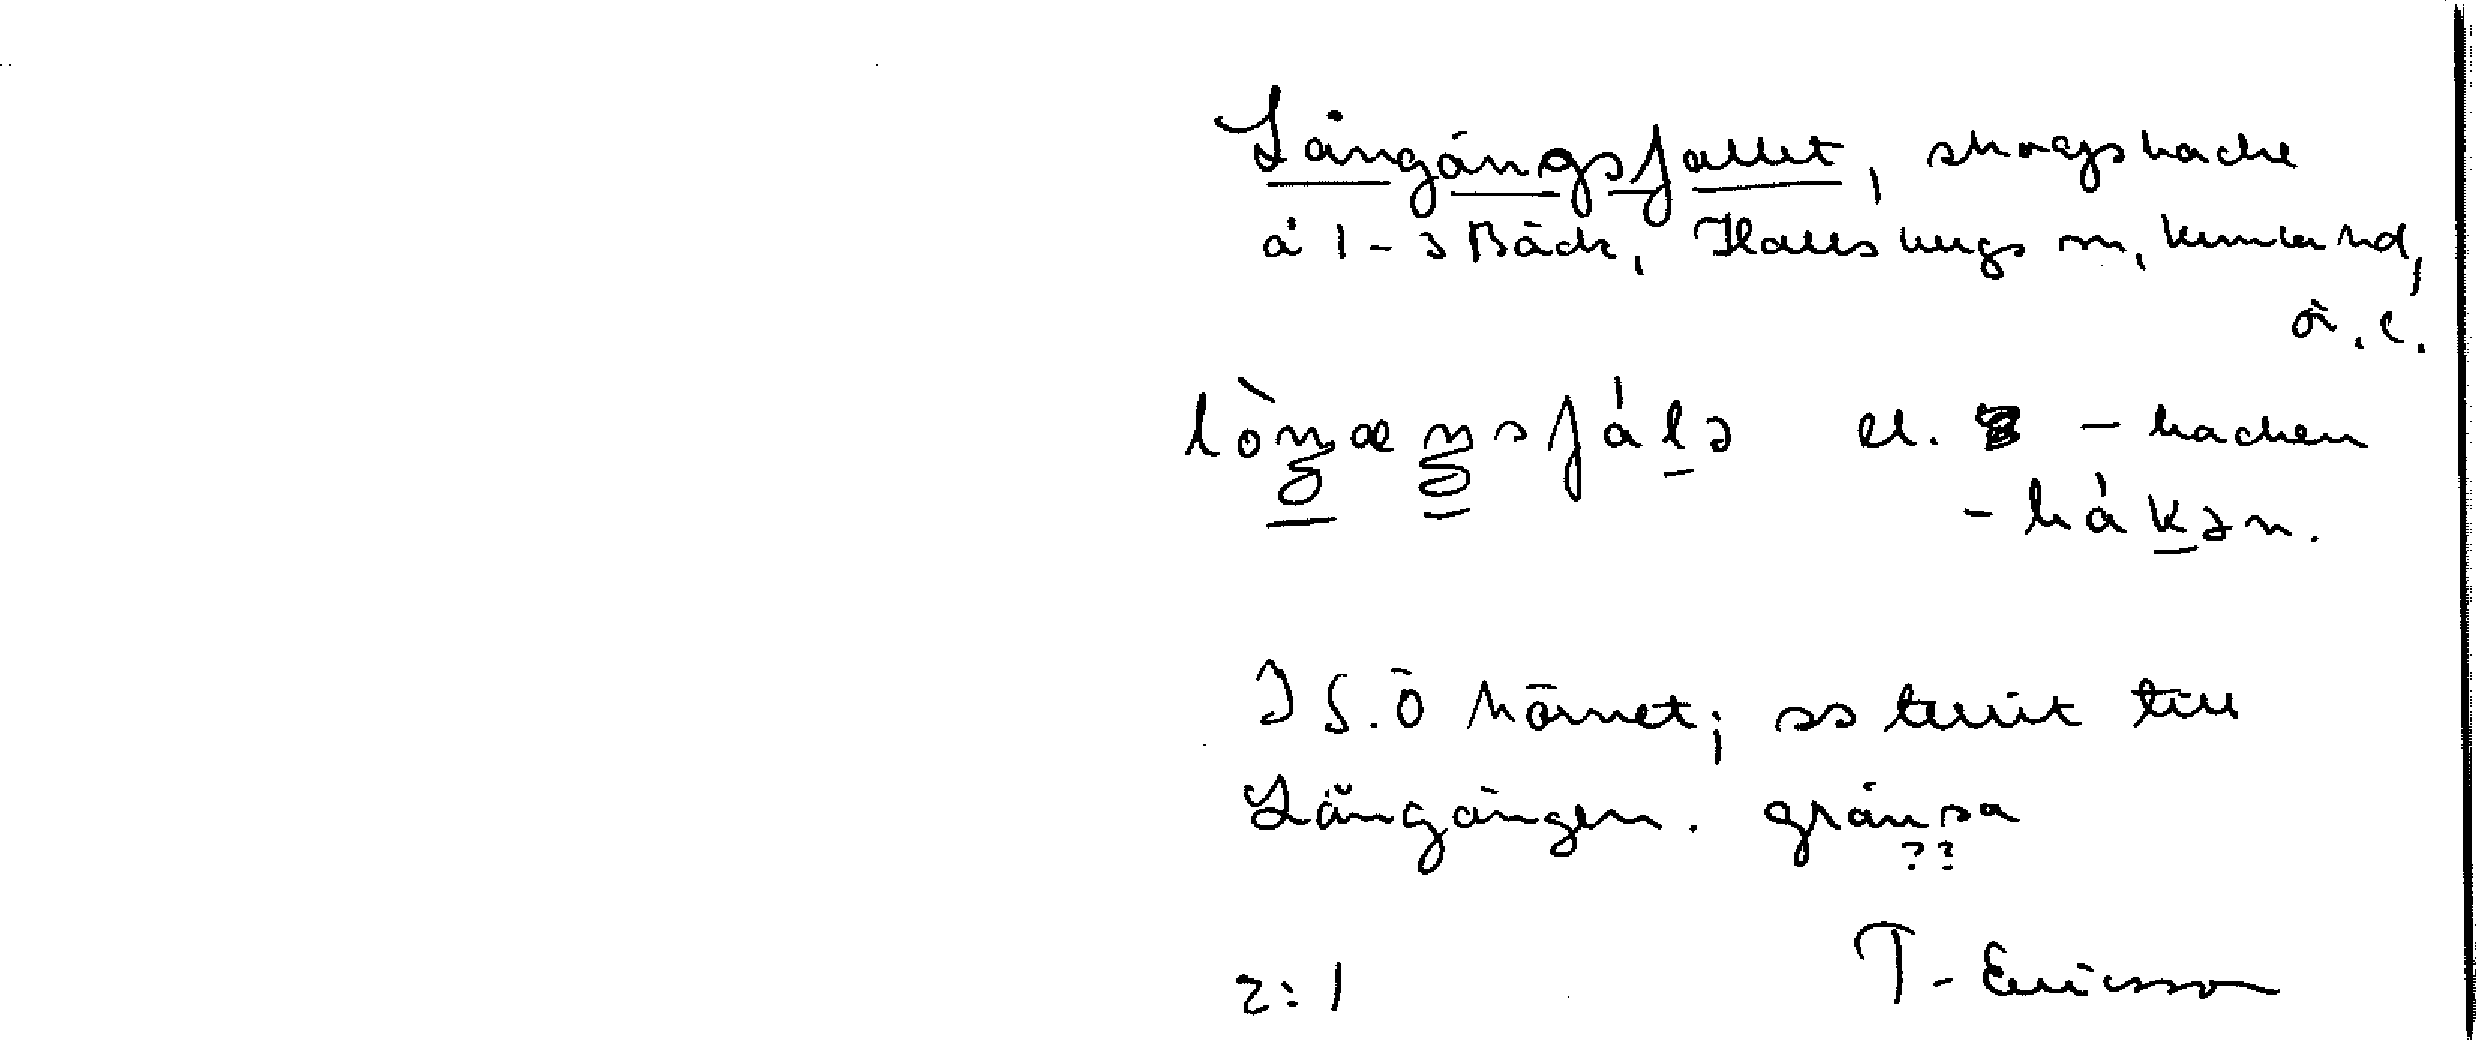 Långängsfallet, skogsbacke
å 1-3 Bäck, Hallsbergs sn, Kumla hd,
Ö.
lòŋæŋsfálə el. -backen
-bákən.
I S.Ö hörnet; ss territ till
Långängen. gränsa
??
2:1 T. Ericsson